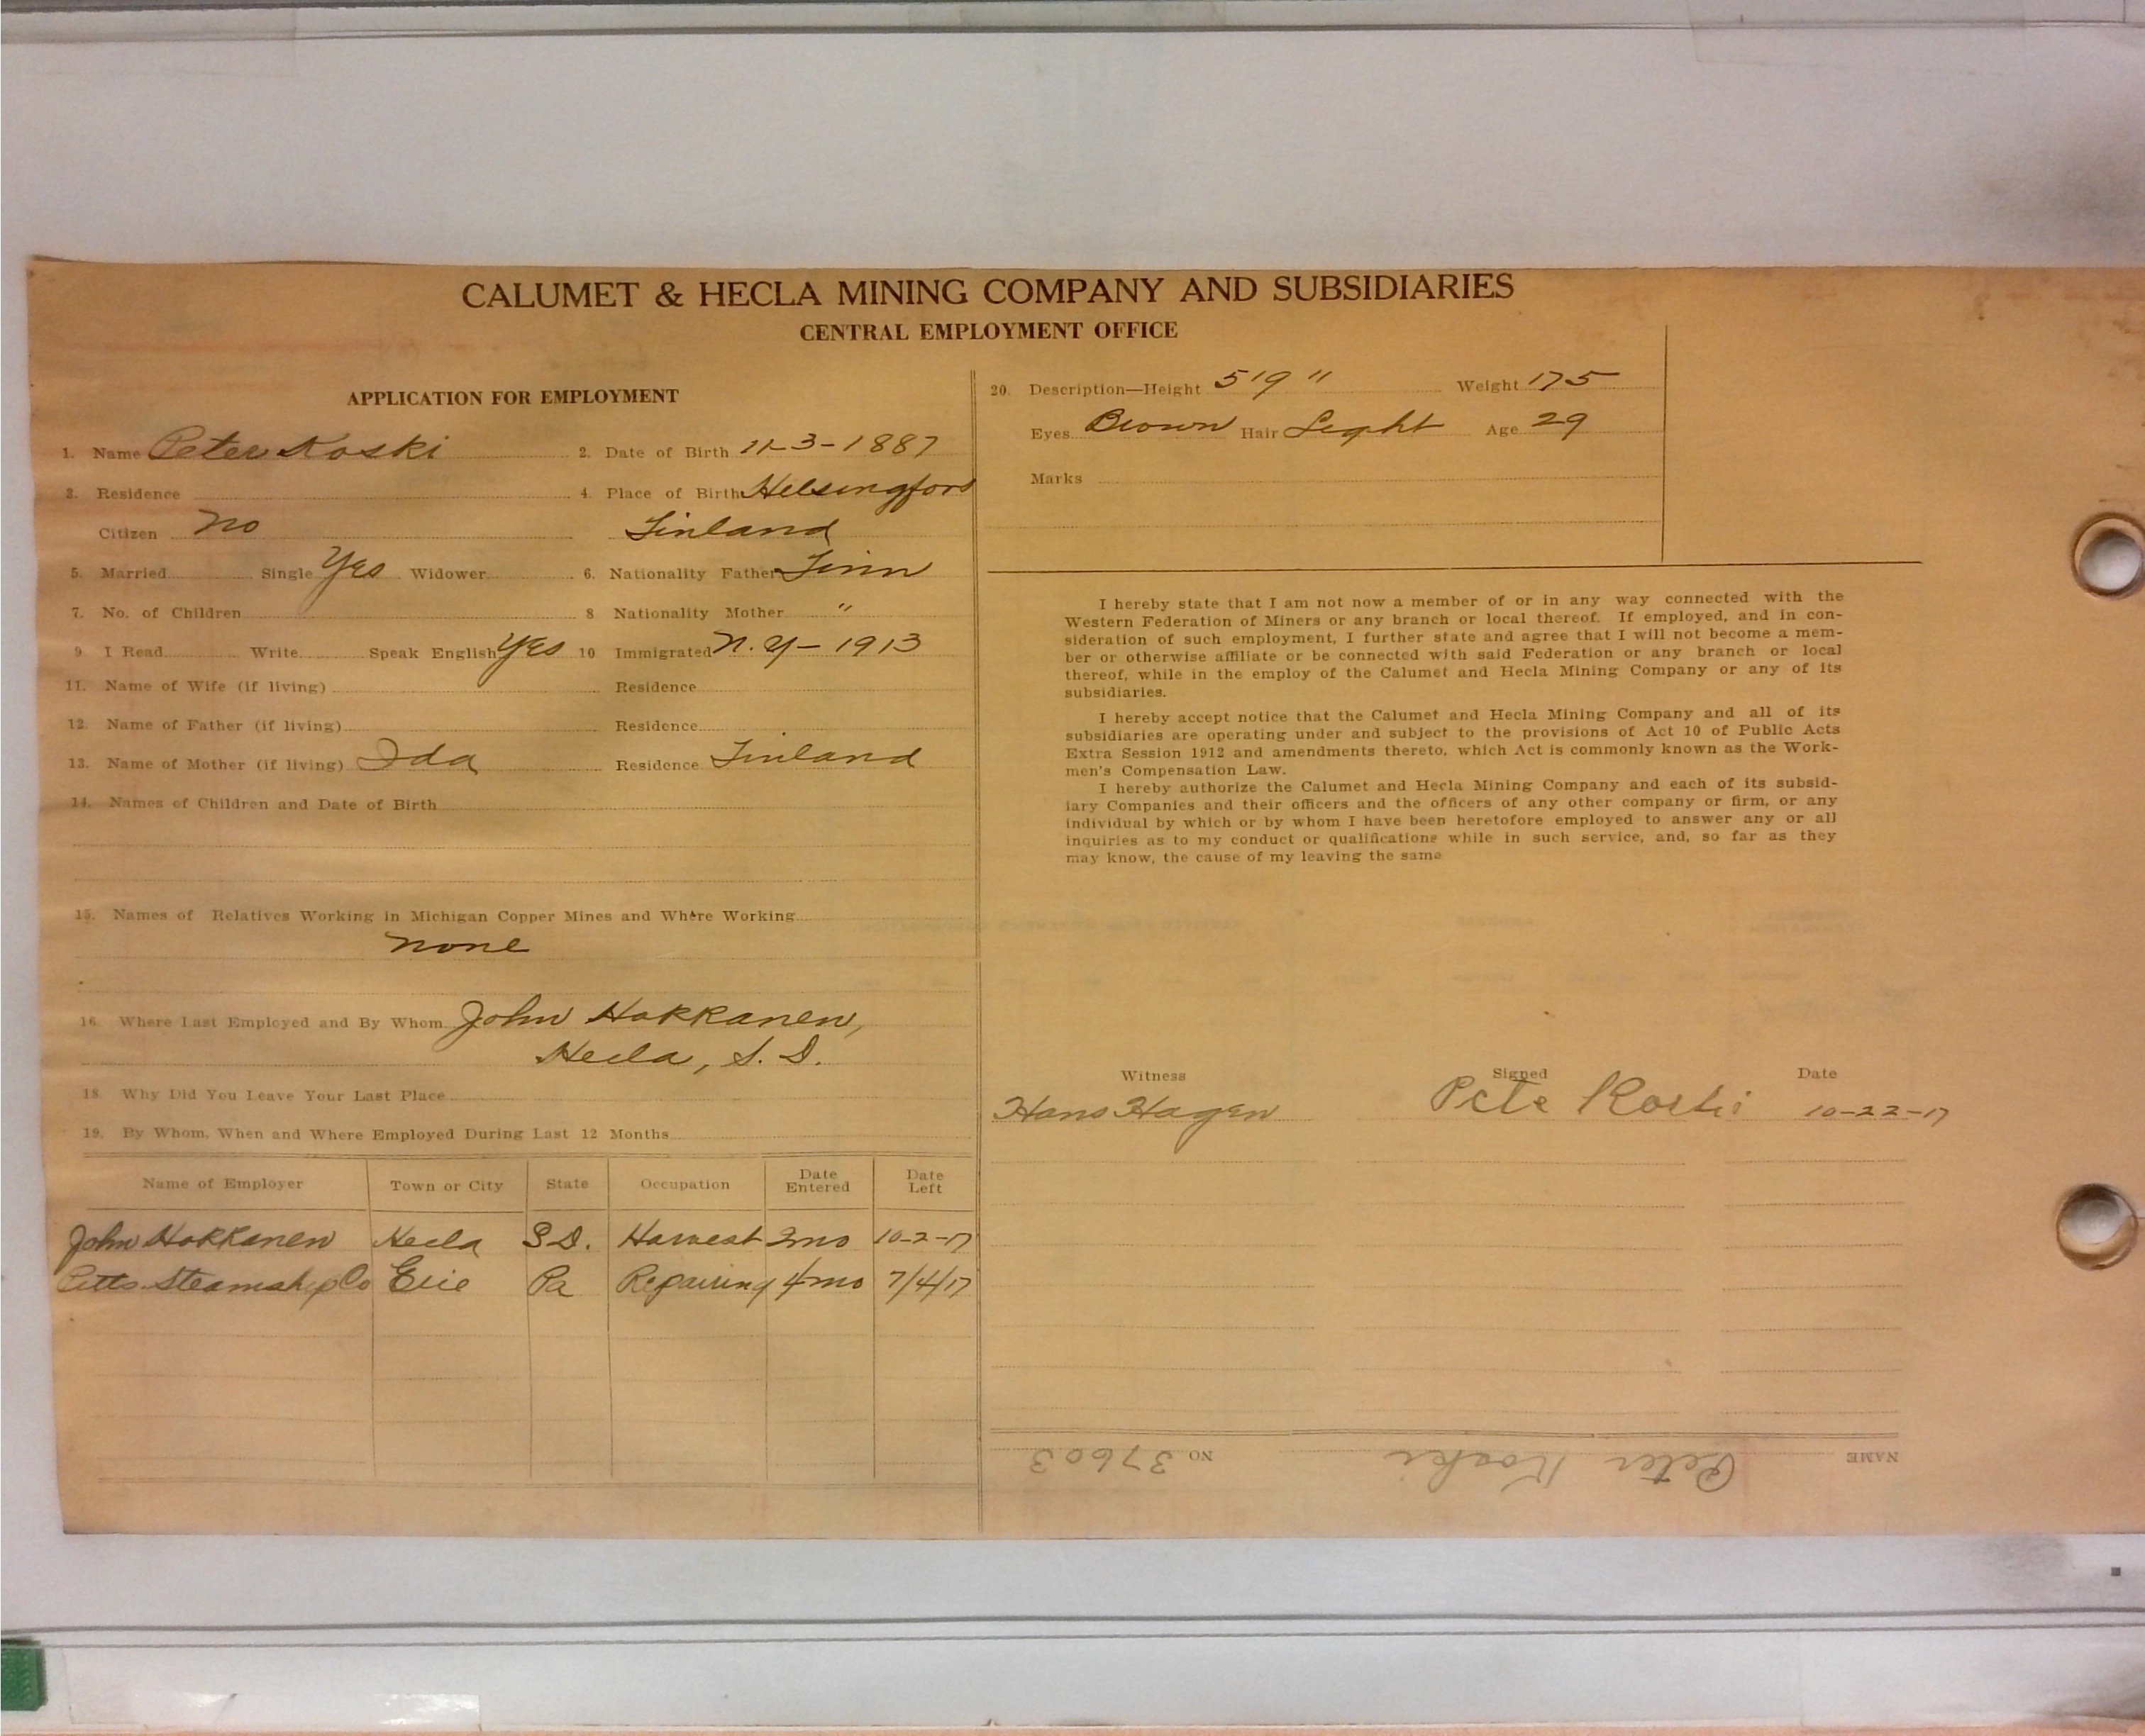 CALUMET & HECLA MINING COMPANY AND SUBSIDIARIES
CENTRAL EMPLOYMENT OFFICE
APPLICATION FOR EMPLOYMENT
1. Name Peter Koski 2. Date of Birth 11-3-1887
3. Residence 4. Place of Birth Helsingfors
Citizen no Finland
5. Married Single Yes Widower 6. Nationality Father Finn
7. No. of Children 8 Nationality Mother "
9. I Read Write Speak English Yes 10 Immigrated N.Y-1913
11. Name of Wife (if living) Residence
12. Name of Father (if living) Residence
13. Name of Mother (if living) Ida Residence Finland
14. Names of Children and Date of Birth
15. Names of Relatives Working in Michigan Copper Mines and Where Working
none
16. Where Last Employed and By Whom John Hokkanen,
Hecla, S. D.
18. Why Did You Leave Your Last Place
19. By Whom, When and Where Employed During Last 12 Months
Name of Employer Town or City State Occupation Date Entered Date Left
John Hokkanen Hecla S.D. Harvest 3mo 10-2-17
Pitts. Steamship Co Erie Pa Repairing 4mo 7/4/17
20. Description—Height 5'9" Weight 175
Eyes Brown Hair Light Age 29
Marks
I hereby state that I am not now a member of or in any way connected with the
Western Federation of Miners or any branch or local thereof. If employed, and in con-
sideration of such employment, I further state and agree that I will not become a mem-
ber or otherwise affiliate or be connected with said Federation or any branch or local
thereof, while in the employ of the Calumet and Hecla Mining Company or any of its
subsidiaries.
I hereby accept notice that the Calumet and Hecla Mining Company and all of its
subsidiaries are operating under and subject to the provisions of Act 10 of Public Acts
Extra Session 1912 and amendments thereto, which Act is commonly known as the Work-
men's Compensation Law.
I hereby authorize the Calumet and Hecla Mining Company and each of its subsid-
iary Companies and their officers and the officers of any other company or firm, or any
individual by which or by whom I have been heretofore employed to answer any or all
inquiries as to my conduct or qualifications while in such service, and, so far as they
may know, the cause of my leaving the same
Witness Signed Date
Hans Hagen Pete Koski 10-22-17
NAME Peter Koski NO 37603